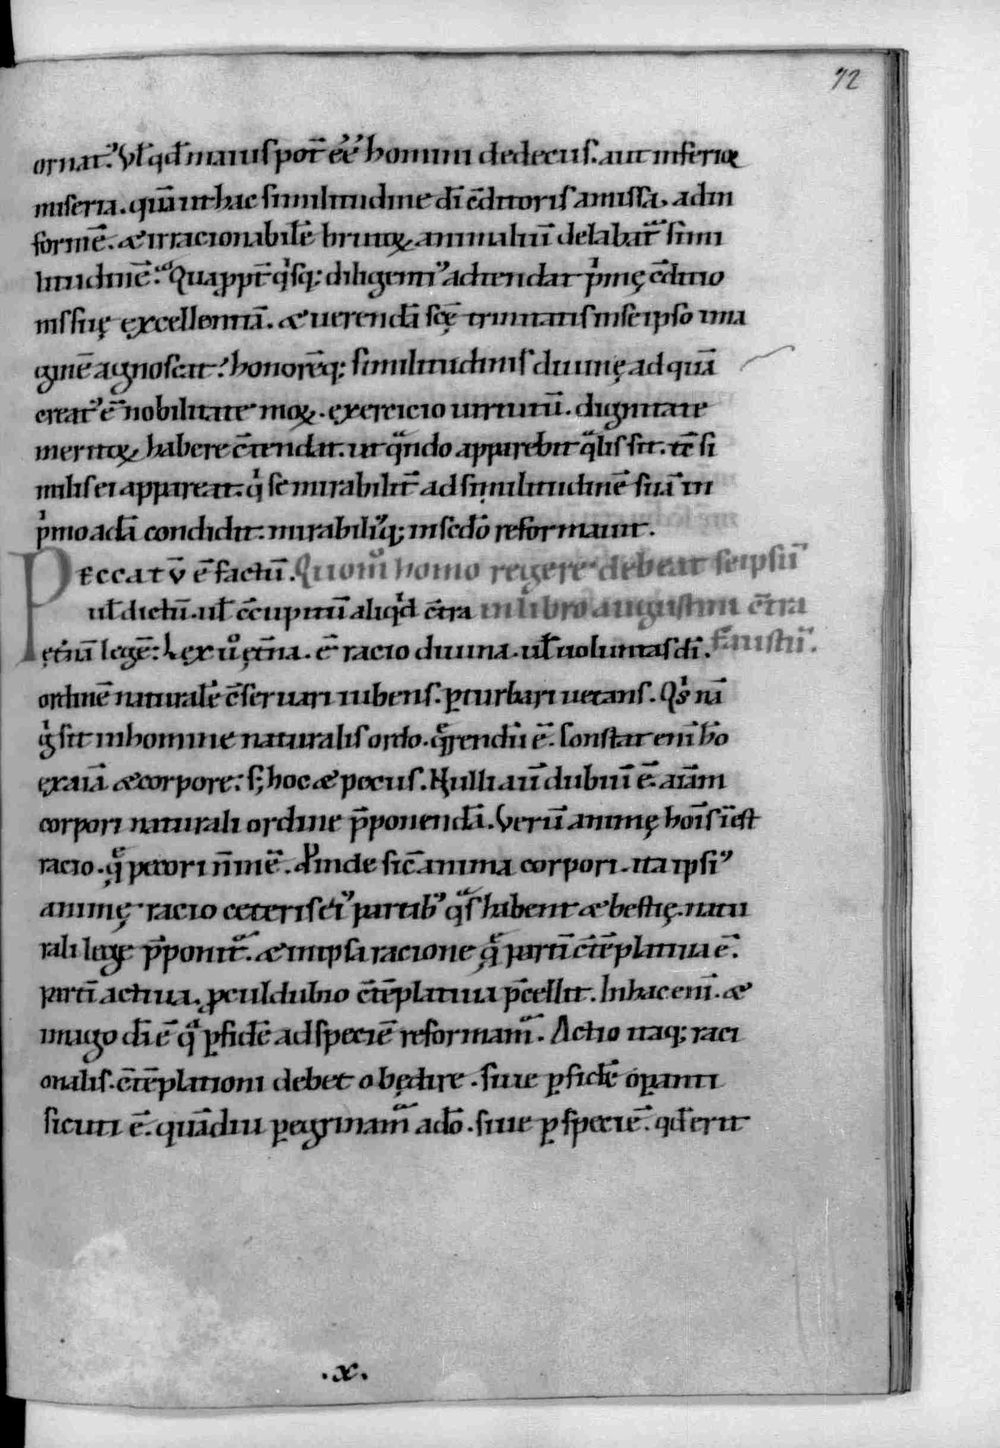 72
ornat᷒. Vƚ qđ maius pot̄ ēē homini dedecus. aut inferioꝝ
miseria. quā ut hac similitudine dī c̄ditoris amissa. ad in
formē. & irracionabilē brutoꝝ animaliū delabat᷒ simi
litudinē. Quapropt̄ qⁱsq; diligenti᷒ adtendat pⁱmę c̄ditio
nis suę excellentiā. & uerendā sc̄ę trinitatis in se ipso ima
ginē agnoscat. honorēq; similitudinis diuinę ad quā
creat᷒ ē nobilitate moꝝ. exercicio uirtutū. dignitate
meritoꝝ habere c̄tendat. ut qᵃndo apparebit qᵃlis sit. tc̄ si
milis ei appareat. qⁱ se mirabilit̄ ad similitudinē suā in
pⁱmo adā condidit. mirabili᷒q; in scdo reformauit.
Peccatū ē factū. Quom̊ homo regere debeat seipsū
uƚ dictū. uƚ c̄cupitū aliqⁱd c̄tra in libro augustini c̄tra
ęt̄nā legē. Lex ů ęt̄na. ē racio diuina. uƚ uoluntas dī. Faustū.
ordinē naturalē c̄seruari iubens. ꝑturbari uetans. Qⁱs nā
gⁱ sit in homine naturalis ordo. qᵉrendū ē. Constat eni h̄o
ex aiā & corpore. s; hoc & pecus. Nulli aū dubiū ē. aiam
corpori naturali ordine p̄ponendā. Verū animę hoīs īest
racio. qᵉ pecori n̄ inē. Proinde sic̄ anima corpori. ita ipsi᷒
animę racio ceteris ei᷒ partib᷒ qᵃs habent & bestię. natu
rali lege p̄ponit᷒. & in ipsa racione qᵉ partī c̄tēplatiua ē.
partī actiua. ꝓculdubio c̄tēplatiua p̄cellit. In hac enī. &
imago dī ē qᵃ ꝑ fidē ad speciē reformam᷒. Actio itaq; raci
onalis. c̄tēplationi debet obędire. siue ꝑ fidē oꝑanti
sicuti ē. quādiu ꝑegrinam᷒ a dō. siue ꝑ speciē. qđ erit
.x.